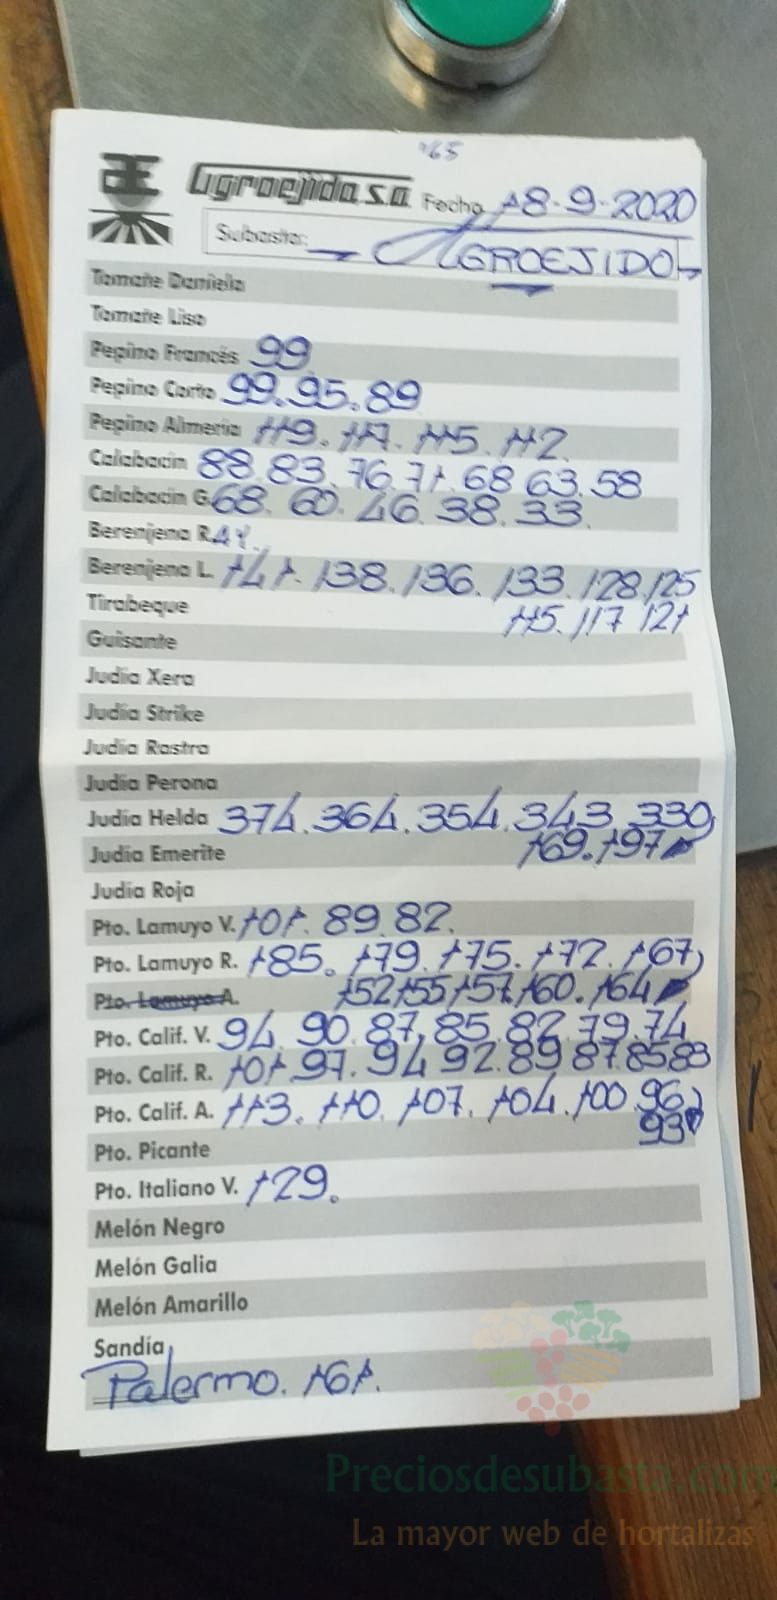 165
Agroejido S.A. Fecha 18-9-2020
Subasta: AGROEJIDO
Tomate Daniela
Tomate Liso
Pepino Francés 99
Pepino Corto 99.95.89
Pepino Almeria 119.117.115.112.
Calabacin 88.83.76.71.68 63.58
Calabacin G. 68.60.46.38.33.
Berenjena R.
Berenjena L. 141.138.136.133.128.125
Tirabeque 115.117 121
Guisante
Judía Xera
Judía Strike
Judía Rastra
Judía Perona
Judía Helda 374.364.354.343.330
Judía Emerite 169.197
Judía Roja
Pto. Lamuyo V. 101.89.82.
Pto. Lamuyo R. 185.179.175.172.167
Pto. Lamuyo A. 152 155 157.160.164
Pto. Calif. V. 94.90.87.85.82.79.74
Pto. Calif. R. 101.97.94 92.89 87.85 83
Pto. Calif. A. 113.110.107.104.100 96
93
Pto. Picante
Pto. Italiano V. 129.
Melón Negro
Melón Galia
Melón Amarillo
Sandía
Palermo. 161.
Preciosdesubasta.com
La mayor web de hortalizas